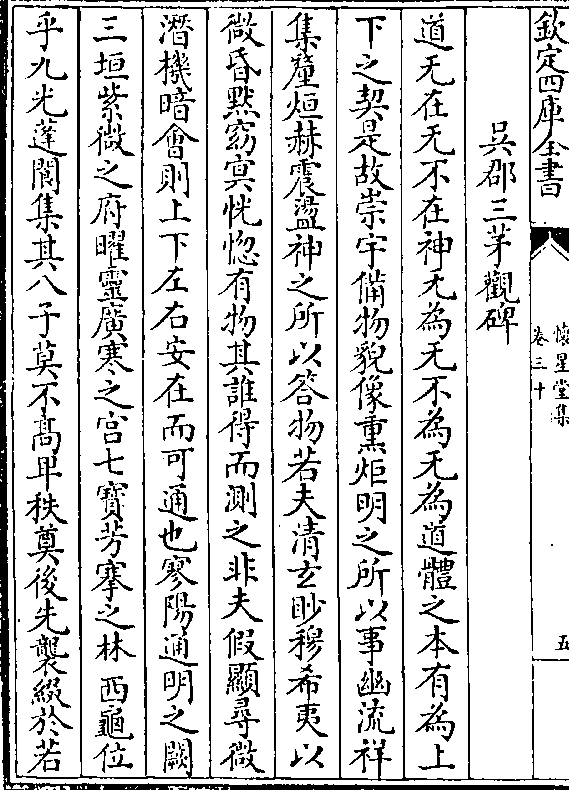 欽定四庫全書
懷星堂集
卷三十
五
吳郡三茅觀碑
道无在无不在神无為无不為无為道體之本有為上
下之契是故崇宇備物貌像熏炬明之所以事幽流祥
集釐烜赫震盪神之所以答物若夫清玄眇穆希夷以
微昏黙窈冥恍惚有物其誰得而測之非夫假顯尋微
潛機暗會則上下左右安在而可通也寥陽通明之闕
三垣紫微之府曜靈廣寒之宫七寶芳搴之林西龜位
乎九光蓬閬集其八子莫不髙卑秩奠後先襲綴於若